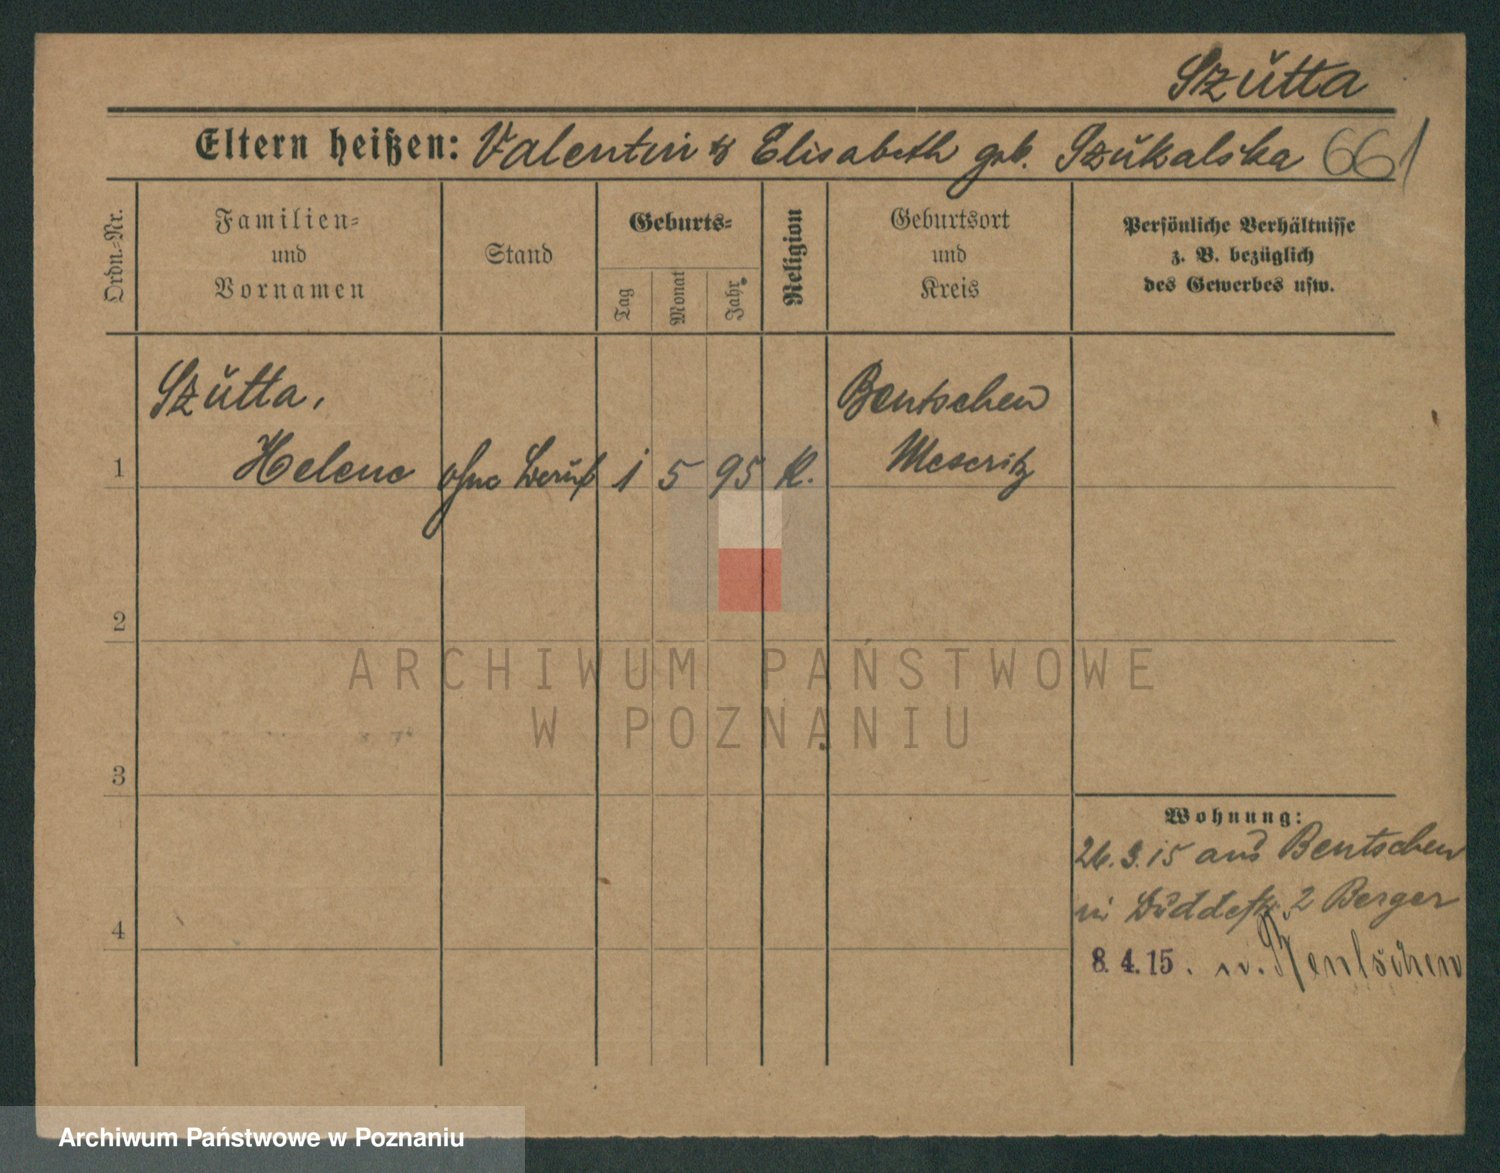 Szŭtta
Eltern heißen: Valentin & Elisabeth geb. Szŭkalska 661
Ordn.=Nr.
Familien=
und
Vornamen
Stand
Geburts=
Tag
Monat
Jahr
Religion
Geburtsort
und
Kreis
Persönliche Verhältnisse
z. B. bezüglich
des Gewerbes usw.
Szŭtta,
Bentschen
1 Helene ohne Berŭf 1 5 95 K. Meseritz
2
ARCHIWUM PAŃSTWOWE
W POZNANIU
3
Wohnung:
26.3.15 aus Bentschen
2 Berger
4
8.4.15. n. Bentschen
Archiwum Państwowe w Poznaniu